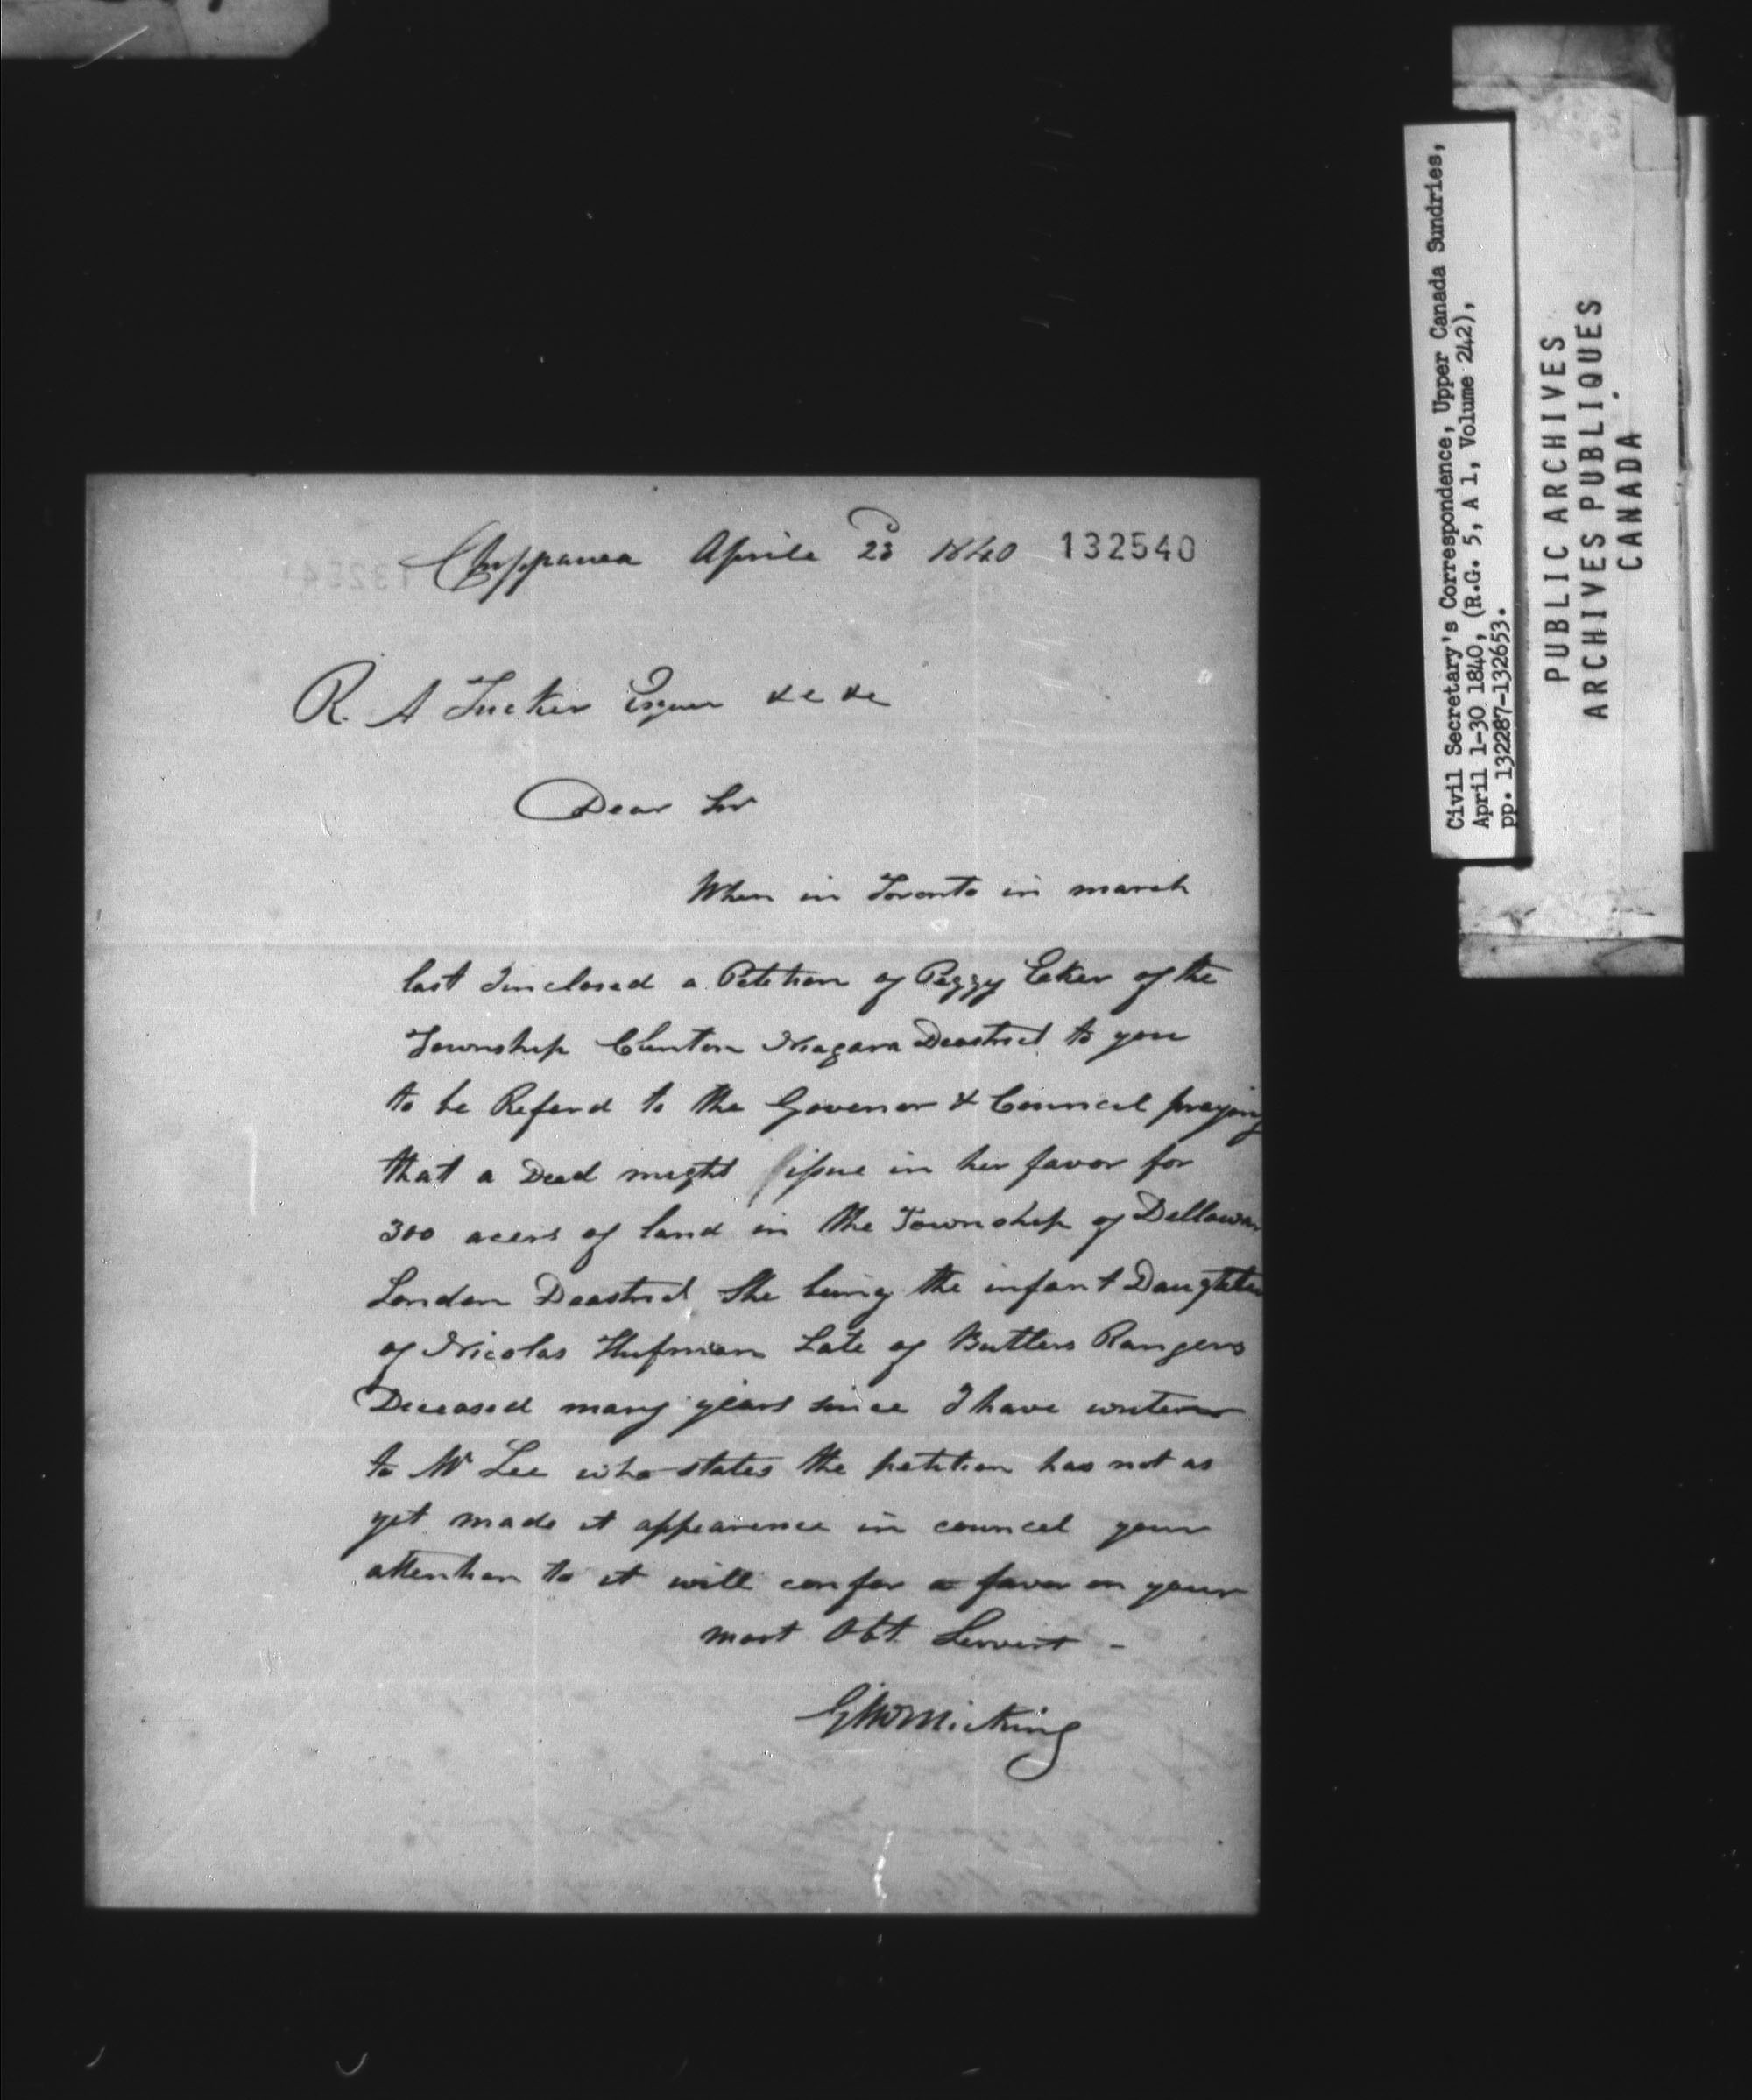 Chippawa Aprile 23d 1840 132540
R. A Tucker Esquer &c &c
Dear Sir
When in Toronto in march
last I inclosed a Petition of Peggy Eeker of the
Township Clinton Niagara Deastrict to you
to be Referd to the Govenor & Councel praying
that a Deed might issue in her favor for
300 acers of land in the Township of Dellawar
London Deastrict She being the infant Daughter
of Nicolas Hufman Late of Butlers Rangers
Deceased many years since I have writen
to Mr Lee who states the petition has not as
yet made it appearence in councel your
attention to it will confer a favor on your
most Obt. Servent -
G McMicking
Civil Secretary's Correspondence, Upper Canada Sundries,
April 1-30 1840, (R.G. 5, A 1, Volume 242),
pp. 132287-132653.
PUBLIC ARCHIVES
ARCHIVES PUBLIQUES
CANADA